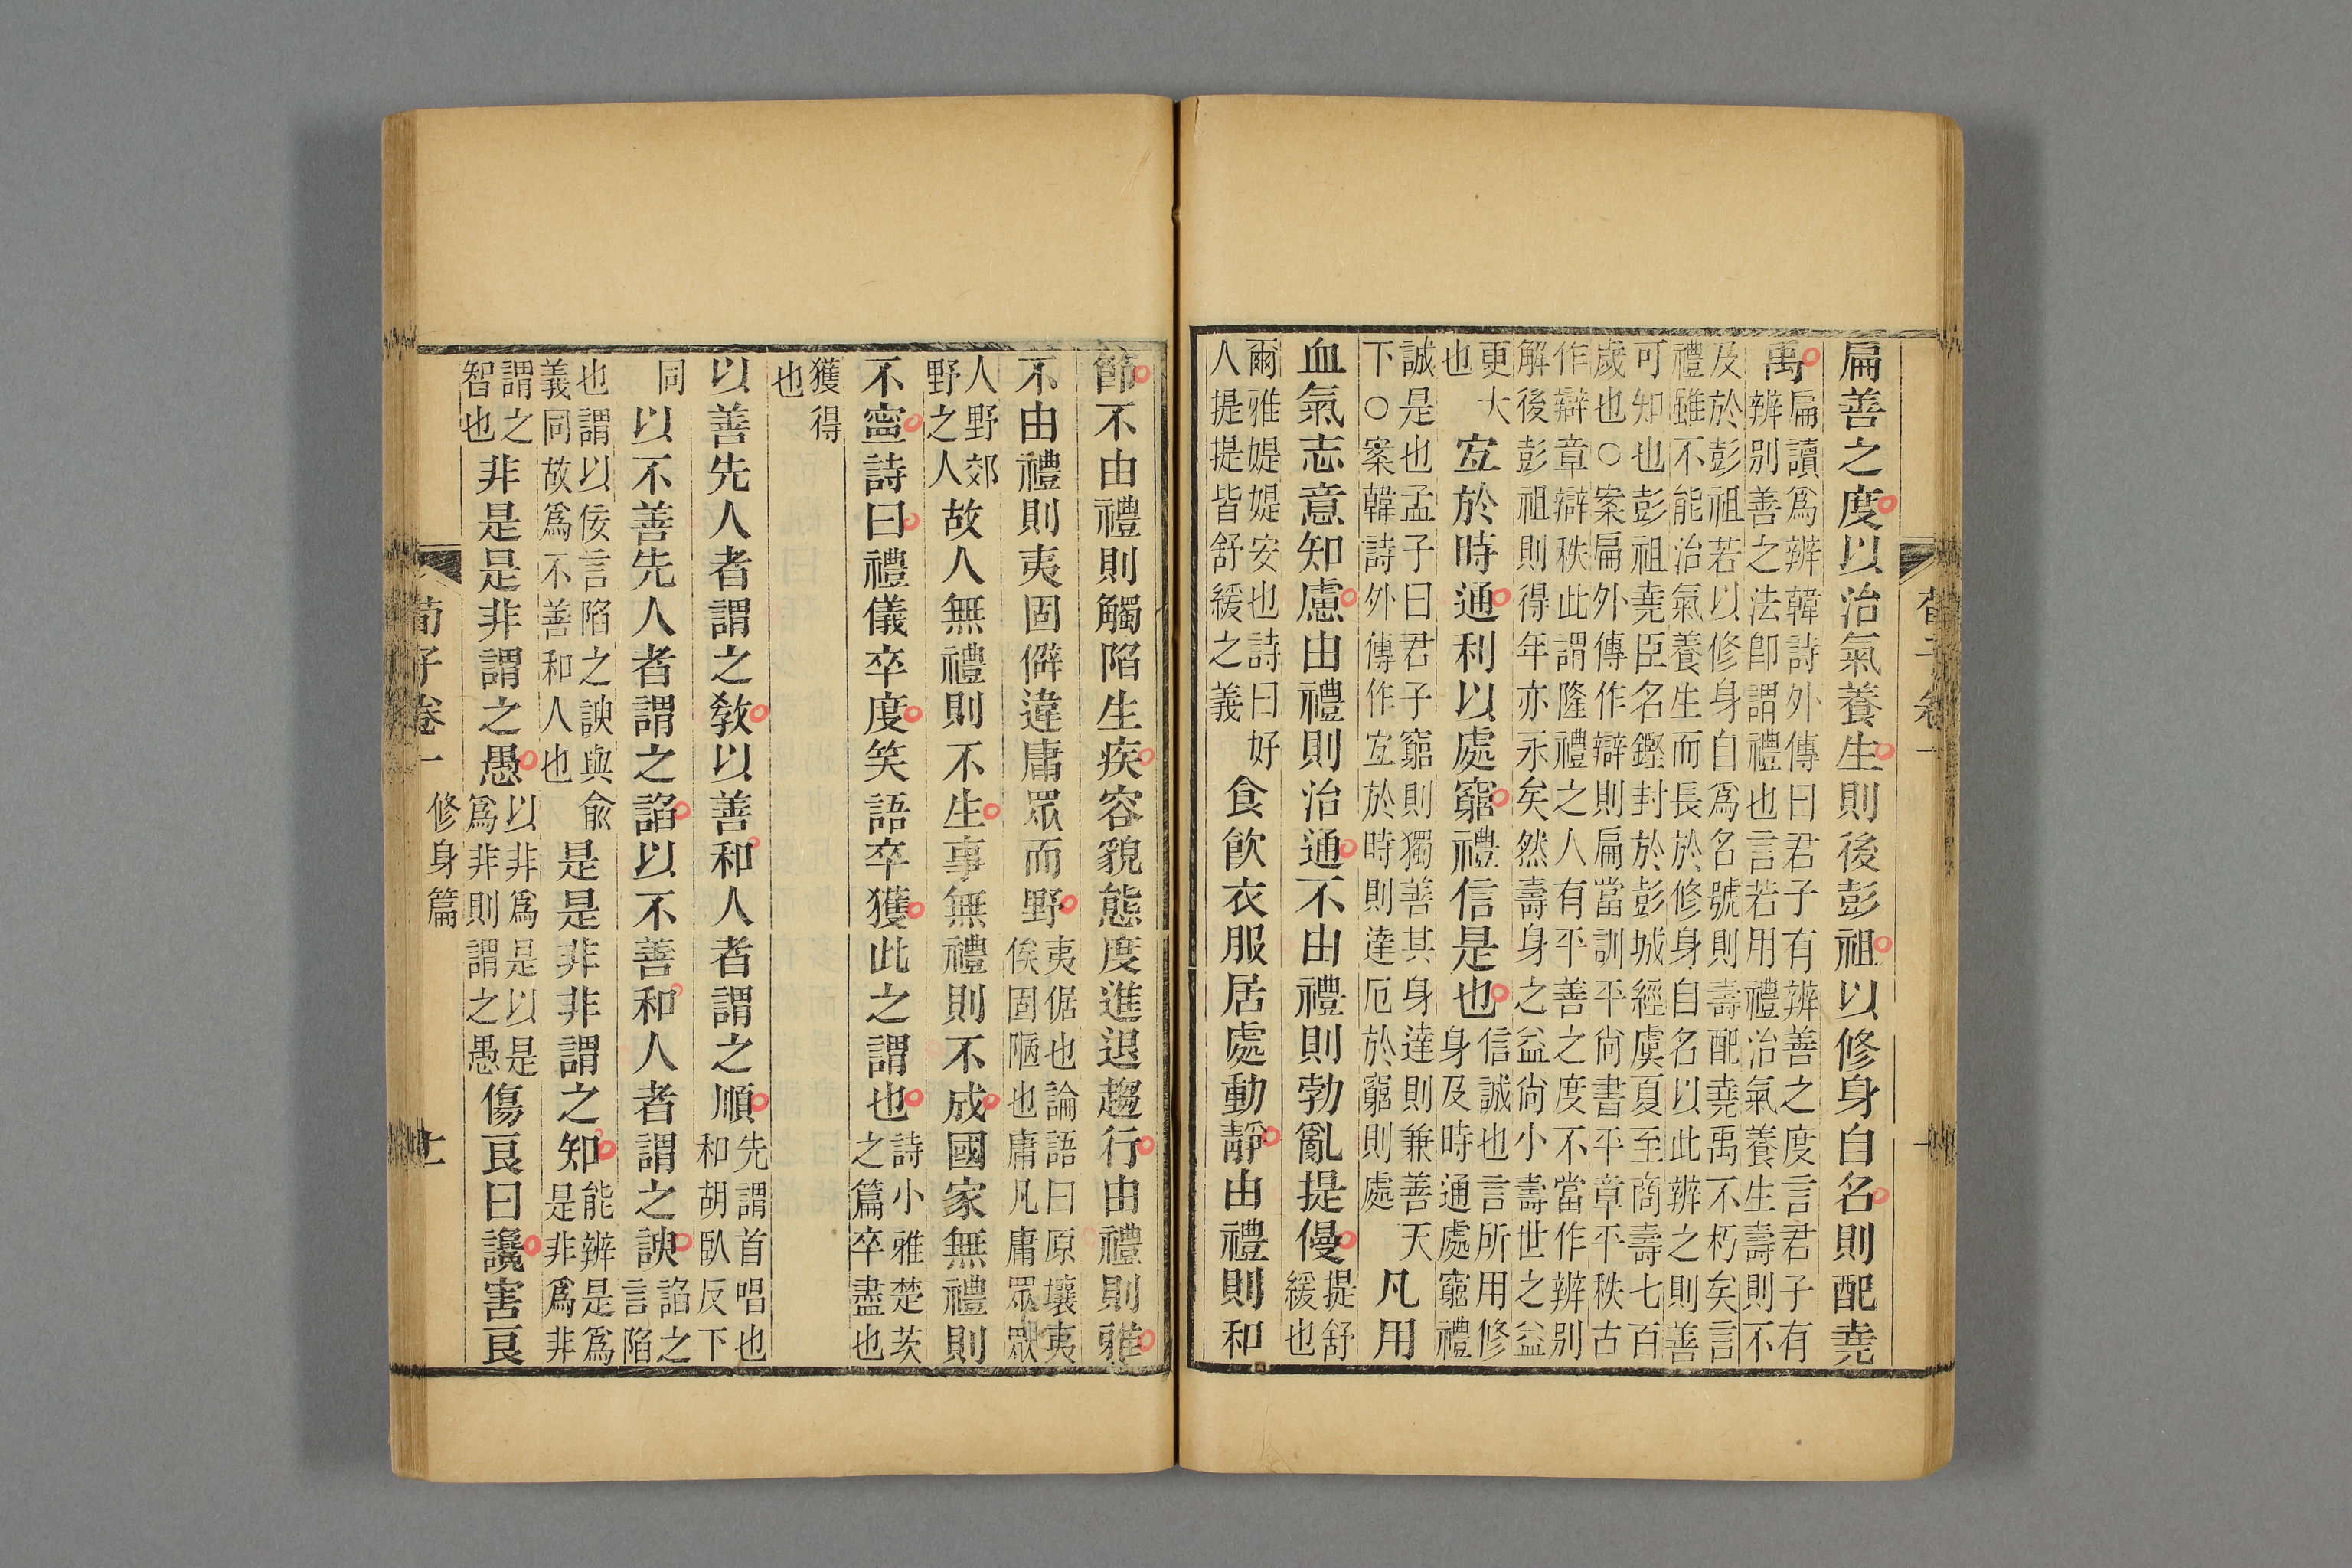 扁善之度以治氣養生則後彭祖以修身自名則配堯
禹
扁讀爲辨韓詩外傳曰君子有辨善之度言君子有
辨別善之法卽謂禮也言若用禮治氣養生壽則不
及於彭祖若以修身自爲名號則壽配堯禹不朽矣言
禮雖不能治氣養生而長於修身自名以此辨之則善
可知也彭祖堯臣名鏗封於彭城經虞夏至商壽七百
歲也○案扁外傳作辯則扁當訓平尙書平章平秩古
作辯章辯秩此謂隆禮之人有平善之度不當作辨別
解後彭祖則得年亦永矣然壽身之益尙小壽世之益
更大
也
宐於時通利以處窮禮信是也
信誠也言所用修
身及時通處窮禮
誠是也孟子曰君子窮則獨善其身達則兼善天
下○案韓詩外傳作宐於時則達厄於窮則處
凡用
血氣志意知慮由禮則治通不由禮則勃亂提僈
提舒
緩也
爾雅媞媞安也詩曰好
人提提皆舒緩之義
食飮衣服居處動靜由禮則和
節不由禮則觸陷生疾容貌態度進退趨行由禮則雅
不由禮則夷固僻違庸眾而野
夷倨也論語曰原壤夷
俟固陋也庸凡庸眾眾
人野郊
野之人
故人無禮則不生事無禮則不成國家無禮則
不寍詩曰禮儀卒度笑語卒獲此之謂也
詩小雅楚茨
之篇卒盡也
獲得
也
以善先人者謂之教以善和人者謂之順
先謂首唱也
和胡臥反下
同
以不善先人者謂之諂以不善和人者謂之諛
諂之
言陷
也謂以佞言陷之諛與兪
義同故爲不善和人也
是是非非謂之知
能辨是爲
是非爲非
謂之
智也
非是是非謂之愚
以非爲是以是
爲非則謂之愚
傷良曰讒害良
荀子卷一
修身篇
十一